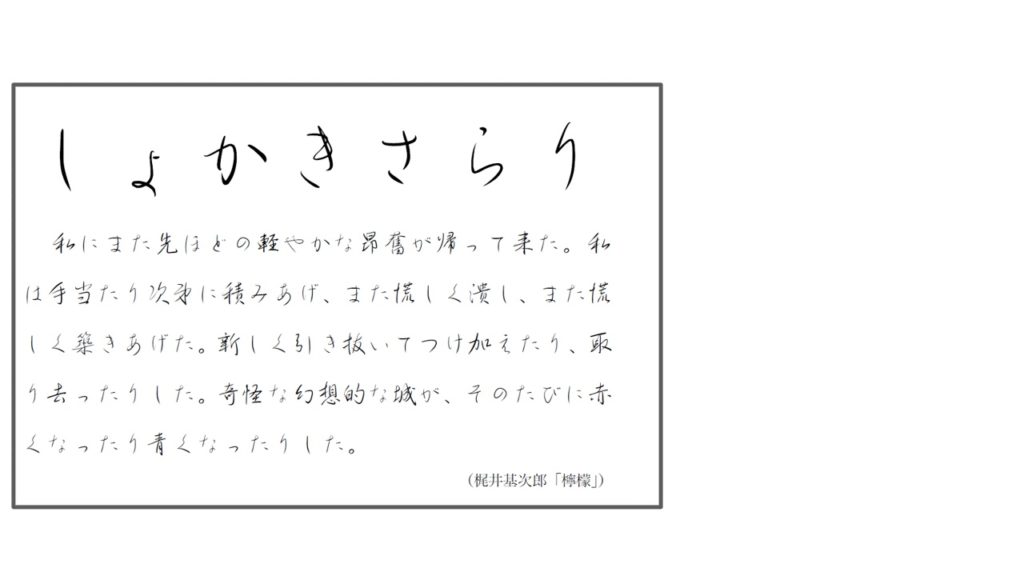 しょかきさらり
私にまた先ほどの軽やかな昂奮が帰って来た。私
は手当たり次第に積みあげ、また慌しく潰し、また慌
しく築きあげた。新しく引き抜いてつけ加えたり、取
り去ったりした。奇怪な幻想的な城が、そのたびに赤
くなったり青くなったりした。
（梶井基次郎「檸檬」）